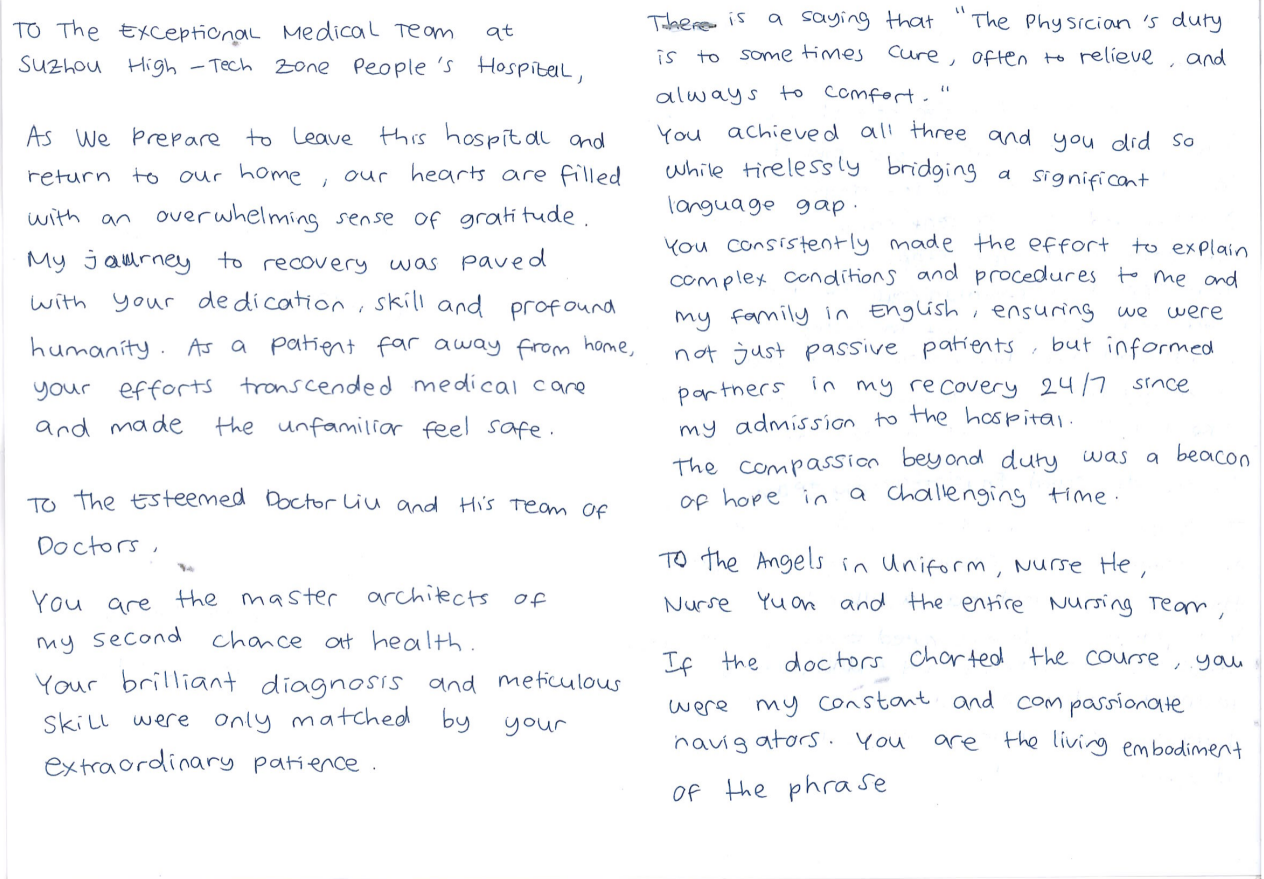 To The Exceptional Medical Team at
Suzhou High-Tech Zone People's Hospital,
As We Prepare to Leave this hospital and
return to our home, our hearts are filled
with an overwhelming sense of gratitude.
My journey to recovery was paved
with your dedication, skill and profound
humanity. As a patient far away from home,
your efforts transcended medical care
and made the unfamiliar feel safe.
To the Esteemed Doctor Liu and His Team of
Doctors,
You are the master architects of
my second chance at health.
Your brilliant diagnosis and meticulous
skill were only matched by your
extraordinary patience.
There is a saying that "The Physician's duty
is to sometimes cure, often to relieve, and
always to comfort."
You achieved all three and you did so
while tirelessly bridging a significant
language gap.
You consistently made the effort to explain
complex conditions and procedures to me and
my family in English, ensuring we were
not just passive patients, but informed
partners in my recovery 24/7 since
my admission to the hospital.
The compassion beyond duty was a beacon
of hope in a challenging time.
To the Angels in Uniform, Nurse He,
Nurse Yuan and the entire Nursing Team,
If the doctors charted the course, you
were my constant and compassionate
navigators. You are the living embodiment
of the phrase